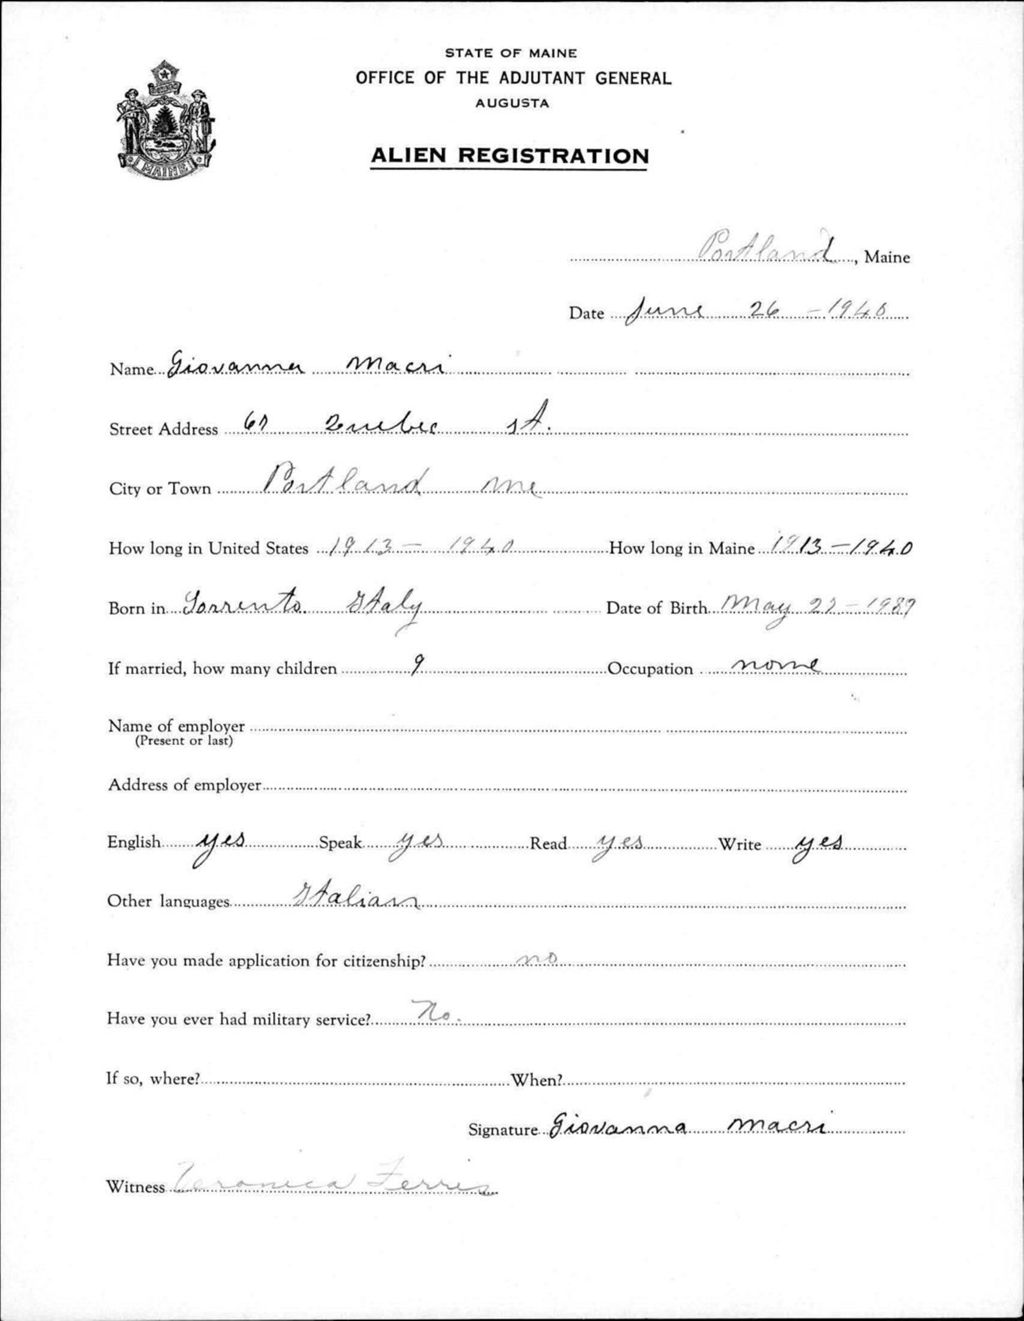 STATE OF MAINE
OFFICE OF THE ADJUTANT GENERAL
AUGUSTA
ALIEN REGISTRATION
MAINE
Portland, Maine
Date June 26 - 1940
Name Giovanna Macri
Street Address 67 Quebec st.
City or Town Portland Me
How long in United States 1913 - 1940 How long in Maine 1913 - 1940
Born in Sorrento Italy Date of Birth May
If married, how many children 9 Occupation none
Name of employer
(Present or last)
Address of employer
English yes Speak yes Read yes Write yes
Other languages Italian
Have you made application for citizenship? no
Have you ever had military service? No.
If so, where? When?
Signature Giovanna Macri
Witness Veronica Ferris